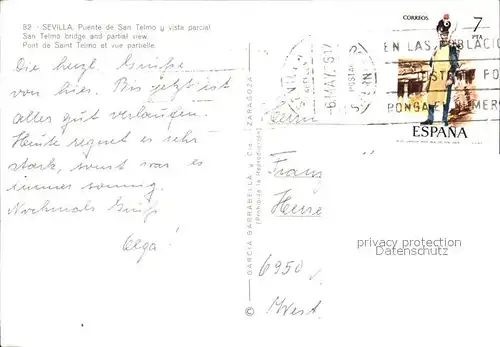 82 - SEVILLA. Puente de San Telmo y vista parcial
San Telmo bridge and partial view
Pont de Saint Telmo et vue partielle
Die herzl. Grüße
von hier. Bis jetzt ist
alles gut verlaufen.
Heute regnet es sehr
stark, sonst war es
immer sonnig.
Nochmals Grüß
Elga!
GARCIA GARRABELLA y Cia. - ZARAGOZA
(Prohibida la Reproducción)
©
CORREOS
7
PTA
ESPAÑA
6 MAY
POSTAL
EN LAS POBLACIO
PONGA EL NUMER
6950
West
privacy protection
Datenschutz